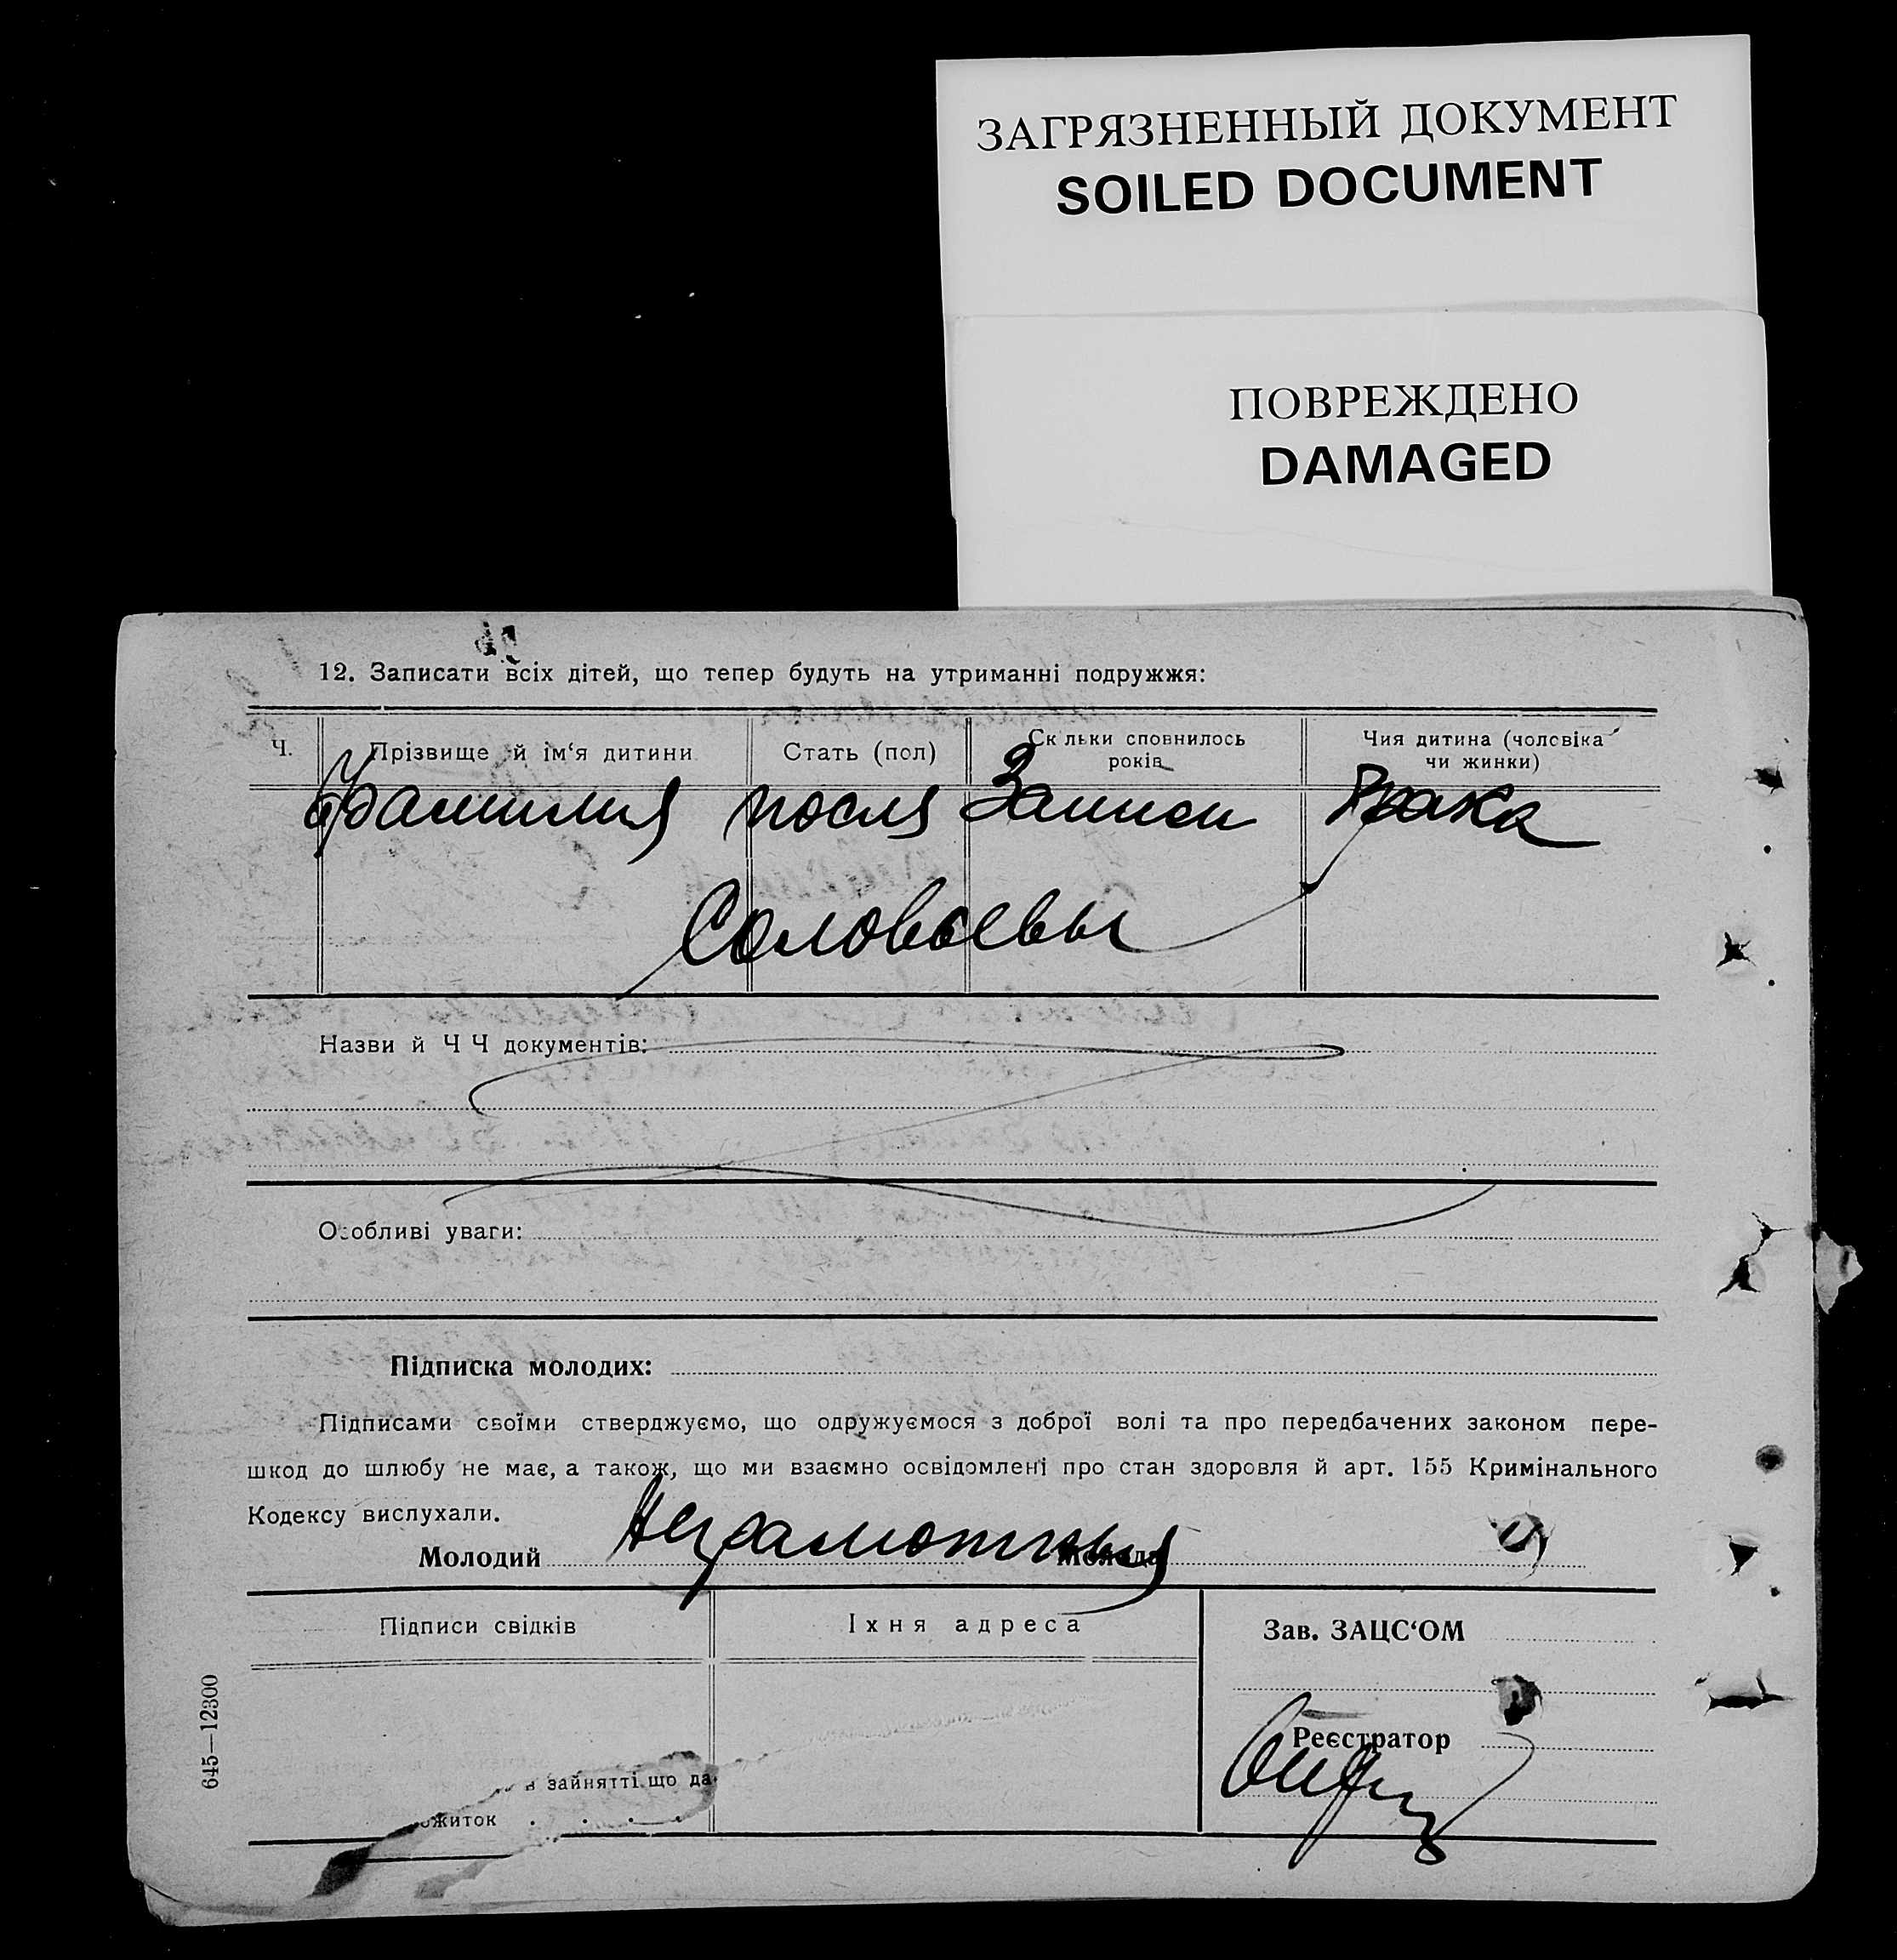 ЗАГРЯЗНЕННЫЙ ДОКУМЕНТ
SOILED DOCUMENT
ПОВРЕЖДЕНО
DAMAGED
12. Записати всіх дітей, що тепер будуть на утриманні подружжя:
Ч. Прізвище й ім‘я дитини Стать (пол) Ск льки сповнилось років Чия дитина (чоловіка чи жинки)
Фамилия после Записи брака
Соловьевы
Назви й Ч Ч документів:
Особливі уваги:
Підписка молодих:
Підписами своїми стверджуємо, що одружуємося з доброї волі та про передбачених законом пере-
шкод до шлюбу не має, а також, що ми взаємно освідомлені про стан здоровля й арт. 155 Кримінального
Кодексу вислухали.
Молодий Неграмотный Молода
Підписи свідків Їхня адреса Зав. ЗАЦС‘ОМ
Реєстратор
в зайнятті що да
ожиток
645—12300